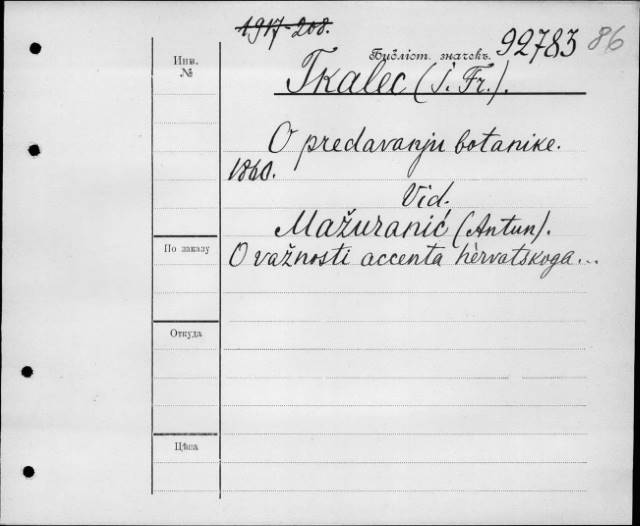 1917-208.
Библіот. значекъ. 92783 86
Инв.
№
Tkalec (I. Fr.).
O predavanju botanike.
1860.
Vid.
Mažuranić (Antun).
По заказу
O važnosti accenta hèrvatskoga...
Откуда
Цѣна